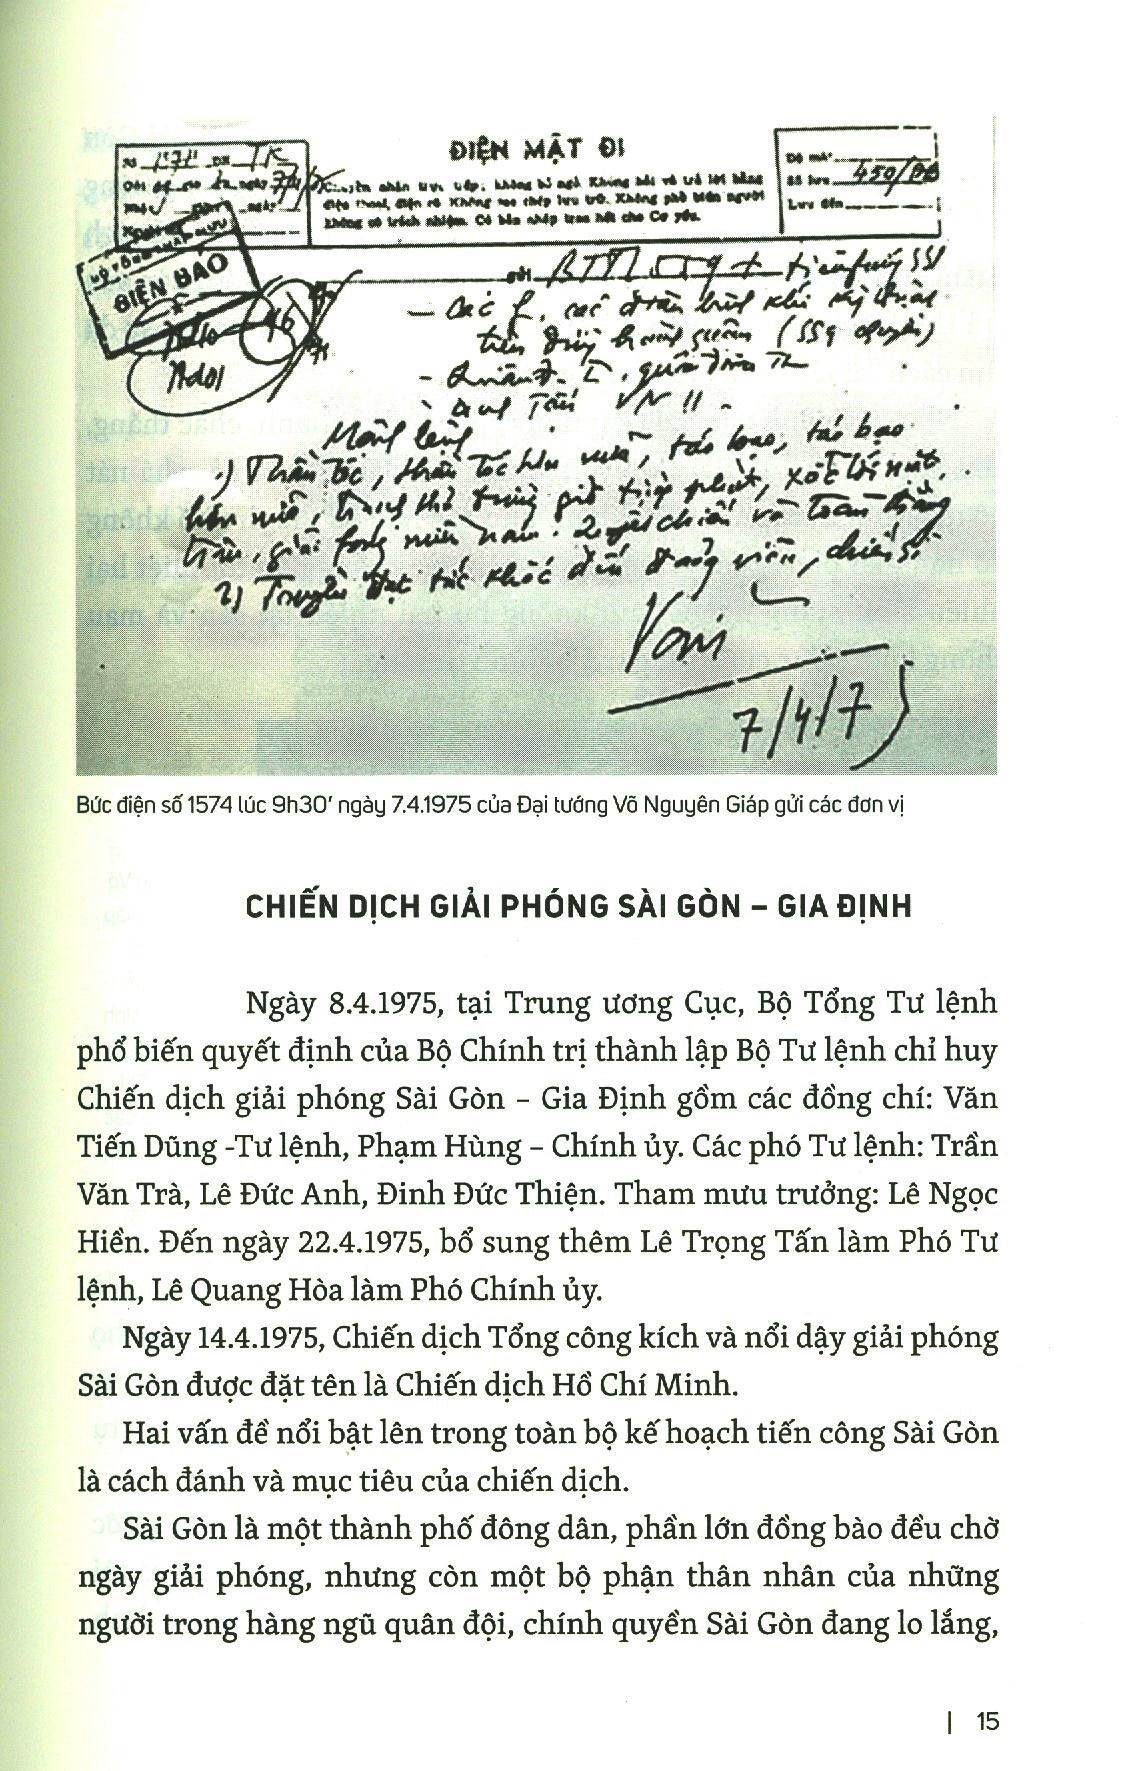 ĐIỆN MẬT ĐI
Số 1574 ĐK TK
Độ mã
Số lưu 450/ĐB
Lưu đến
Chuyển nhận trực tiếp; không bỏ ngỏ. Không hỏi và trả lời bằng
điện thoại, điện rõ. Không sao chép lưu trữ. Không phổ biến người
không có trách nhiệm. Có bản nhập trao hết cho Cơ yếu.
ĐIỆN BÁO
gửi
- Các f, các đoàn binh khí kỹ thuật
trên đường hành quân (559 chuyển)
- Quân đ.
- anh Tấn
Mệnh lệnh
1) Thần tốc, thần tốc hơn nữa, táo bạo, táo bạo
hơn nữa, tranh thủ từng giờ từng phút, xốc tới mặt
trận, giải phóng miền nam. Quyết chiến và toàn thắng
2) Truyền đạt tức khắc đến đảng viên, chiến sĩ
Văn
7/4/75
Bức điện số 1574 lúc 9h30’ ngày 7.4.1975 của Đại tướng Võ Nguyên Giáp gửi các đơn vị
CHIẾN DỊCH GIẢI PHÓNG SÀI GÒN – GIA ĐỊNH
Ngày 8.4.1975, tại Trung ương Cục, Bộ Tổng Tư lệnh
phổ biến quyết định của Bộ Chính trị thành lập Bộ Tư lệnh chỉ huy
Chiến dịch giải phóng Sài Gòn – Gia Định gồm các đồng chí: Văn
Tiến Dũng -Tư lệnh, Phạm Hùng – Chính ủy. Các phó Tư lệnh: Trần
Văn Trà, Lê Đức Anh, Đinh Đức Thiện. Tham mưu trưởng: Lê Ngọc
Hiền. Đến ngày 22.4.1975, bổ sung thêm Lê Trọng Tấn làm Phó Tư
lệnh, Lê Quang Hòa làm Phó Chính ủy.
Ngày 14.4.1975, Chiến dịch Tổng công kích và nổi dậy giải phóng
Sài Gòn được đặt tên là Chiến dịch Hồ Chí Minh.
Hai vấn đề nổi bật lên trong toàn bộ kế hoạch tiến công Sài Gòn
là cách đánh và mục tiêu của chiến dịch.
Sài Gòn là một thành phố đông dân, phần lớn đồng bào đều chờ
ngày giải phóng, nhưng còn một bộ phận thân nhân của những
người trong hàng ngũ quân đội, chính quyền Sài Gòn đang lo lắng,
| 15